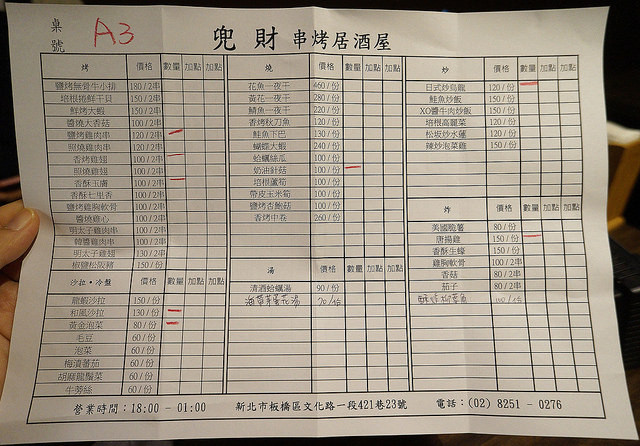 桌號 A3
兜財 串烤居酒屋
烤 價格 數量 加點 加點
鹽烤無骨牛小排 180/2串
培根捲鮮干貝 150/2串
鮮烤大蝦 150/2串
醬燒大香菇 100/2串
鹽烤雞肉串 120/2串
照燒雞肉串 120/2串
香烤雞翅 100/2串
照燒雞翅 100/2串
香酥玉膚 100/2串
香酥七里香 100/2串
鹽烤雞胸軟骨 100/2串
醬燒雞心 100/2串
明太子雞肉串 100/2串
韓醬雞肉串 100/2串
明太子雞翅 130/2串
椒鹽松阪豬 150/份
沙拉·冷盤 價格 數量 加點 加點
龍蝦沙拉 150/份
和風沙拉 130/份
黃金泡菜 80/份
毛豆 60/份
泡菜 60/份
梅漬蕃茄 60/份
胡麻龍鬚菜 60/份
牛蒡絲 60/份
燒 價格 數量 加點 加點
花魚一夜干 460/份
黃花一夜干 280/份
鯖魚一夜干 220/份
香烤秋刀魚 120/份
鮭魚下巴 130/份
蝴蝶大蝦 240/份
蛤蠣絲瓜 100/份
奶油鮮菇 100/份
培根蘆筍 100/份
帶皮玉米筍 100/份
鹽烤杏鮑菇 100/份
香烤中卷 260/份
湯 價格 數量 加點 加點
清酒蛤蠣湯 90/份
海帶芽蛋花湯 70/份
炒 價格 數量 加點 加點
日式炒烏龍 120/份
鮭魚炒飯 150/份
XO醬牛肉炒飯 150/份
培根高麗菜 120/份
松坂炒水蓮 120/份
辣炒泡菜雞 150/份
炸 價格 數量 加點 加點
美國脆薯 80/份
唐揚雞 150/份
香酥生蠔 150/份
雞胸軟骨 100/2串
香菇 80/2串
茄子 80/2串
100/份
營業時間：18:00 - 01:00 新北市板橋區文化路一段421巷23號 電話：(02) 8251 - 0276